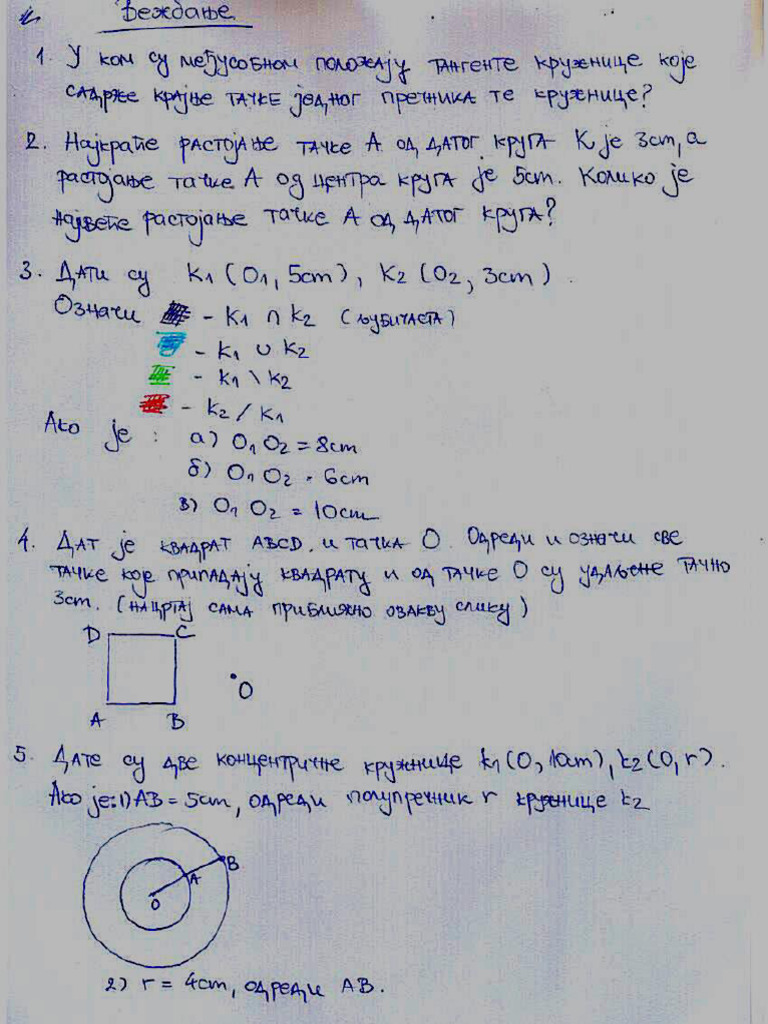 Вежбање
1. У ком су међусобном положају тангенте кружнице које
садрже крајње тачке једног пречника те кружнице?
2. Најкраће растојање тачке А од датог круга К је 3cm, а
растојање тачке А од центра круга је 5cm. Колико је
највеће растојање тачке А од датог круга?
3. Дати су K1 (O1, 5cm), K2 (O2, 3cm).
Означи - K1 ∩ K2 (љубичаста)
- K1 ∪ K2
- K1 \ K2
- K2 / K1
Ако је : а) O1 O2 = 8cm
б) O1 O2 = 6cm
в) O1 O2 = 10cm
4. Дат је квадрат ABCD. и тачка О. Одреди и означи све
тачке које припадају квадрату и од тачке О су удаљене тачно
3cm. (нацртај сама приближно овакву слику)
D C
O
A B
5. Дате су две концентричне кружнице k1 (O, 10cm), k2 (O, r).
Ако је: 1) AB = 5cm, одреди полупречник r кружнице k2
B
A
O
2) r = 4cm, одреди AB.